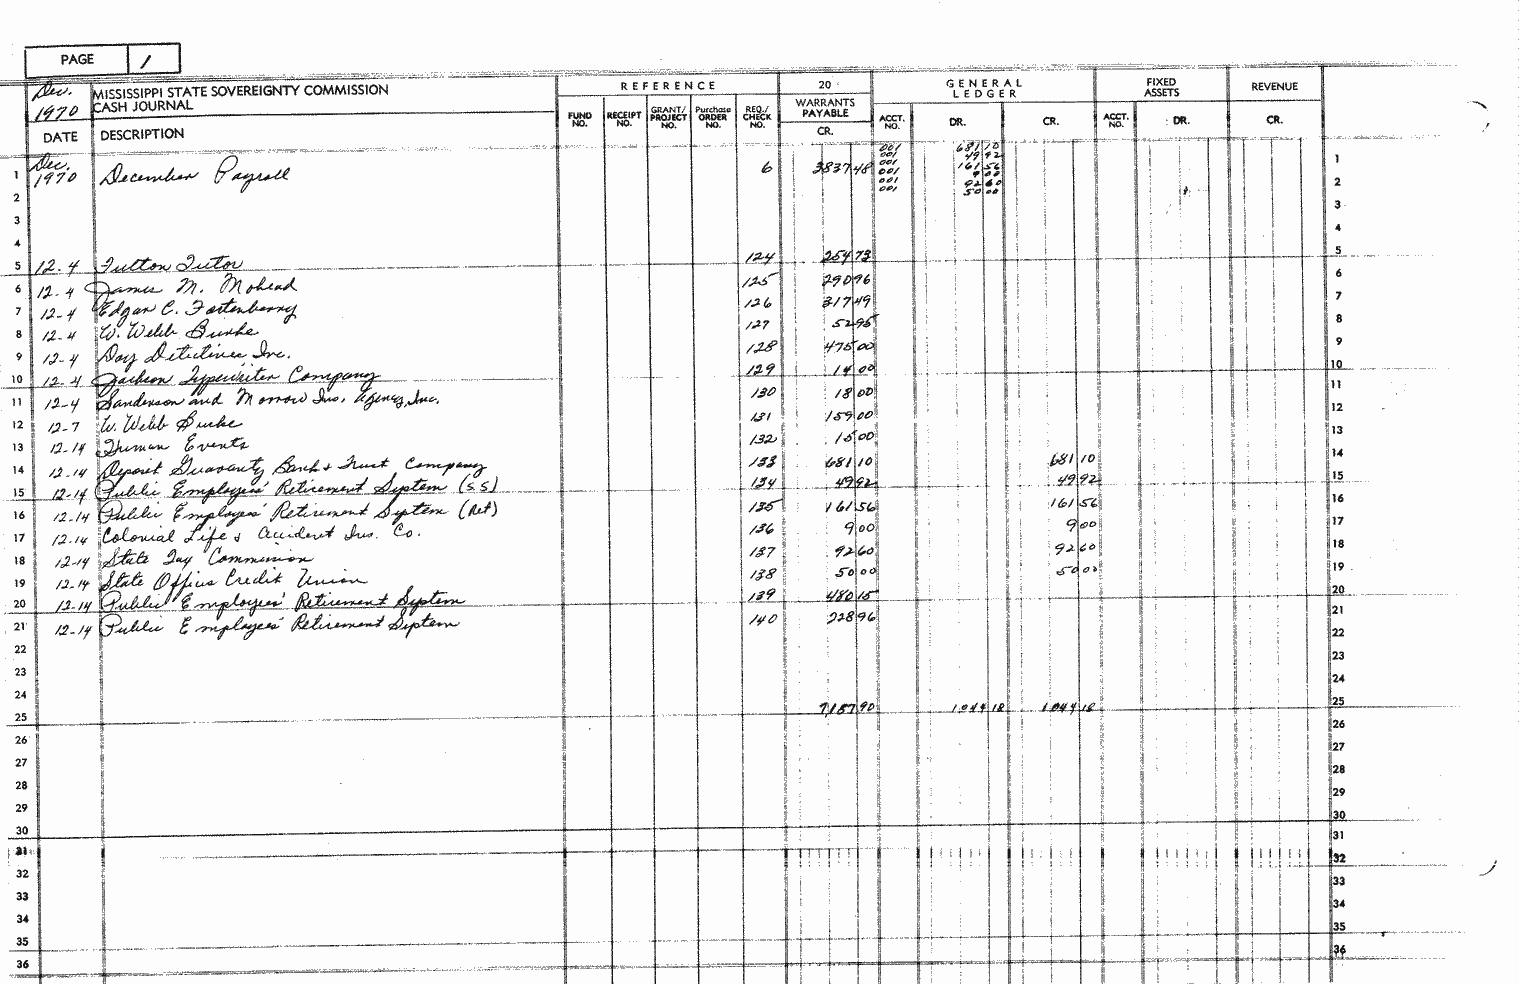 PAGE 1
Dec. 1970 MISSISSIPPI STATE SOVEREIGNTY COMMISSION
CASH JOURNAL
REFERENCE 20 GENERAL LEDGER FIXED ASSETS REVENUE
DATE DESCRIPTION FUND NO. RECEIPT NO. GRANT/PROJECT NO. Purchase ORDER NO. REQ./CHECK NO. WARRANTS PAYABLE CR. ACCT. NO. DR. CR. ACCT. NO. DR. CR.
001 681 10
001 49 92
1 Dec. 1970 December Payroll 6 3837 48 001 161 56 1
001 9 00
2 001 92 60 2
001 50 00
3 3
4 4
5 12-4 Fulton Tutor 124 254 73 5
6 12-4 James M. Mohead 125 290 96 6
7 12-4 Edgar C. Fortenberry 126 317 49 7
8 12-4 W. Webb Burke 127 52 95 8
9 12-4 Day Detectives Inc. 128 475 00 9
10 12-4 Jackson Typewriter Company 129 14 00 10
11 12-4 Sanderson and Morrow Ins. Agency, Inc. 130 18 00 11
12 12-7 W. Webb Burke 131 159 00 12
13 12-14 Human Events 132 15 00 13
14 12-14 Deposit Guaranty Bank & Trust Company 133 681 10 681 10 14
15 12-14 Public Employees' Retirement System (S.S) 134 49 92 49 92 15
16 12-14 Public Employees' Retirement System (Ret) 135 161 56 161 56 16
17 12-14 Colonial Life & Accident Ins. Co. 136 9 00 9 00 17
18 12-14 State Tax Commission 137 92 60 92 60 18
19 12-14 State Offices Credit Union 138 50 00 50 00 19
20 12-14 Public Employees' Retirement System 139 480 15 20
21 12-14 Public Employees' Retirement System 140 228 96 21
22 22
23 23
24 24
25 7187 90 1044 18 1044 18 25
26 26
27 27
28 28
29 29
30 30
31 31
32 32
33 33
34 34
35 35
36 36